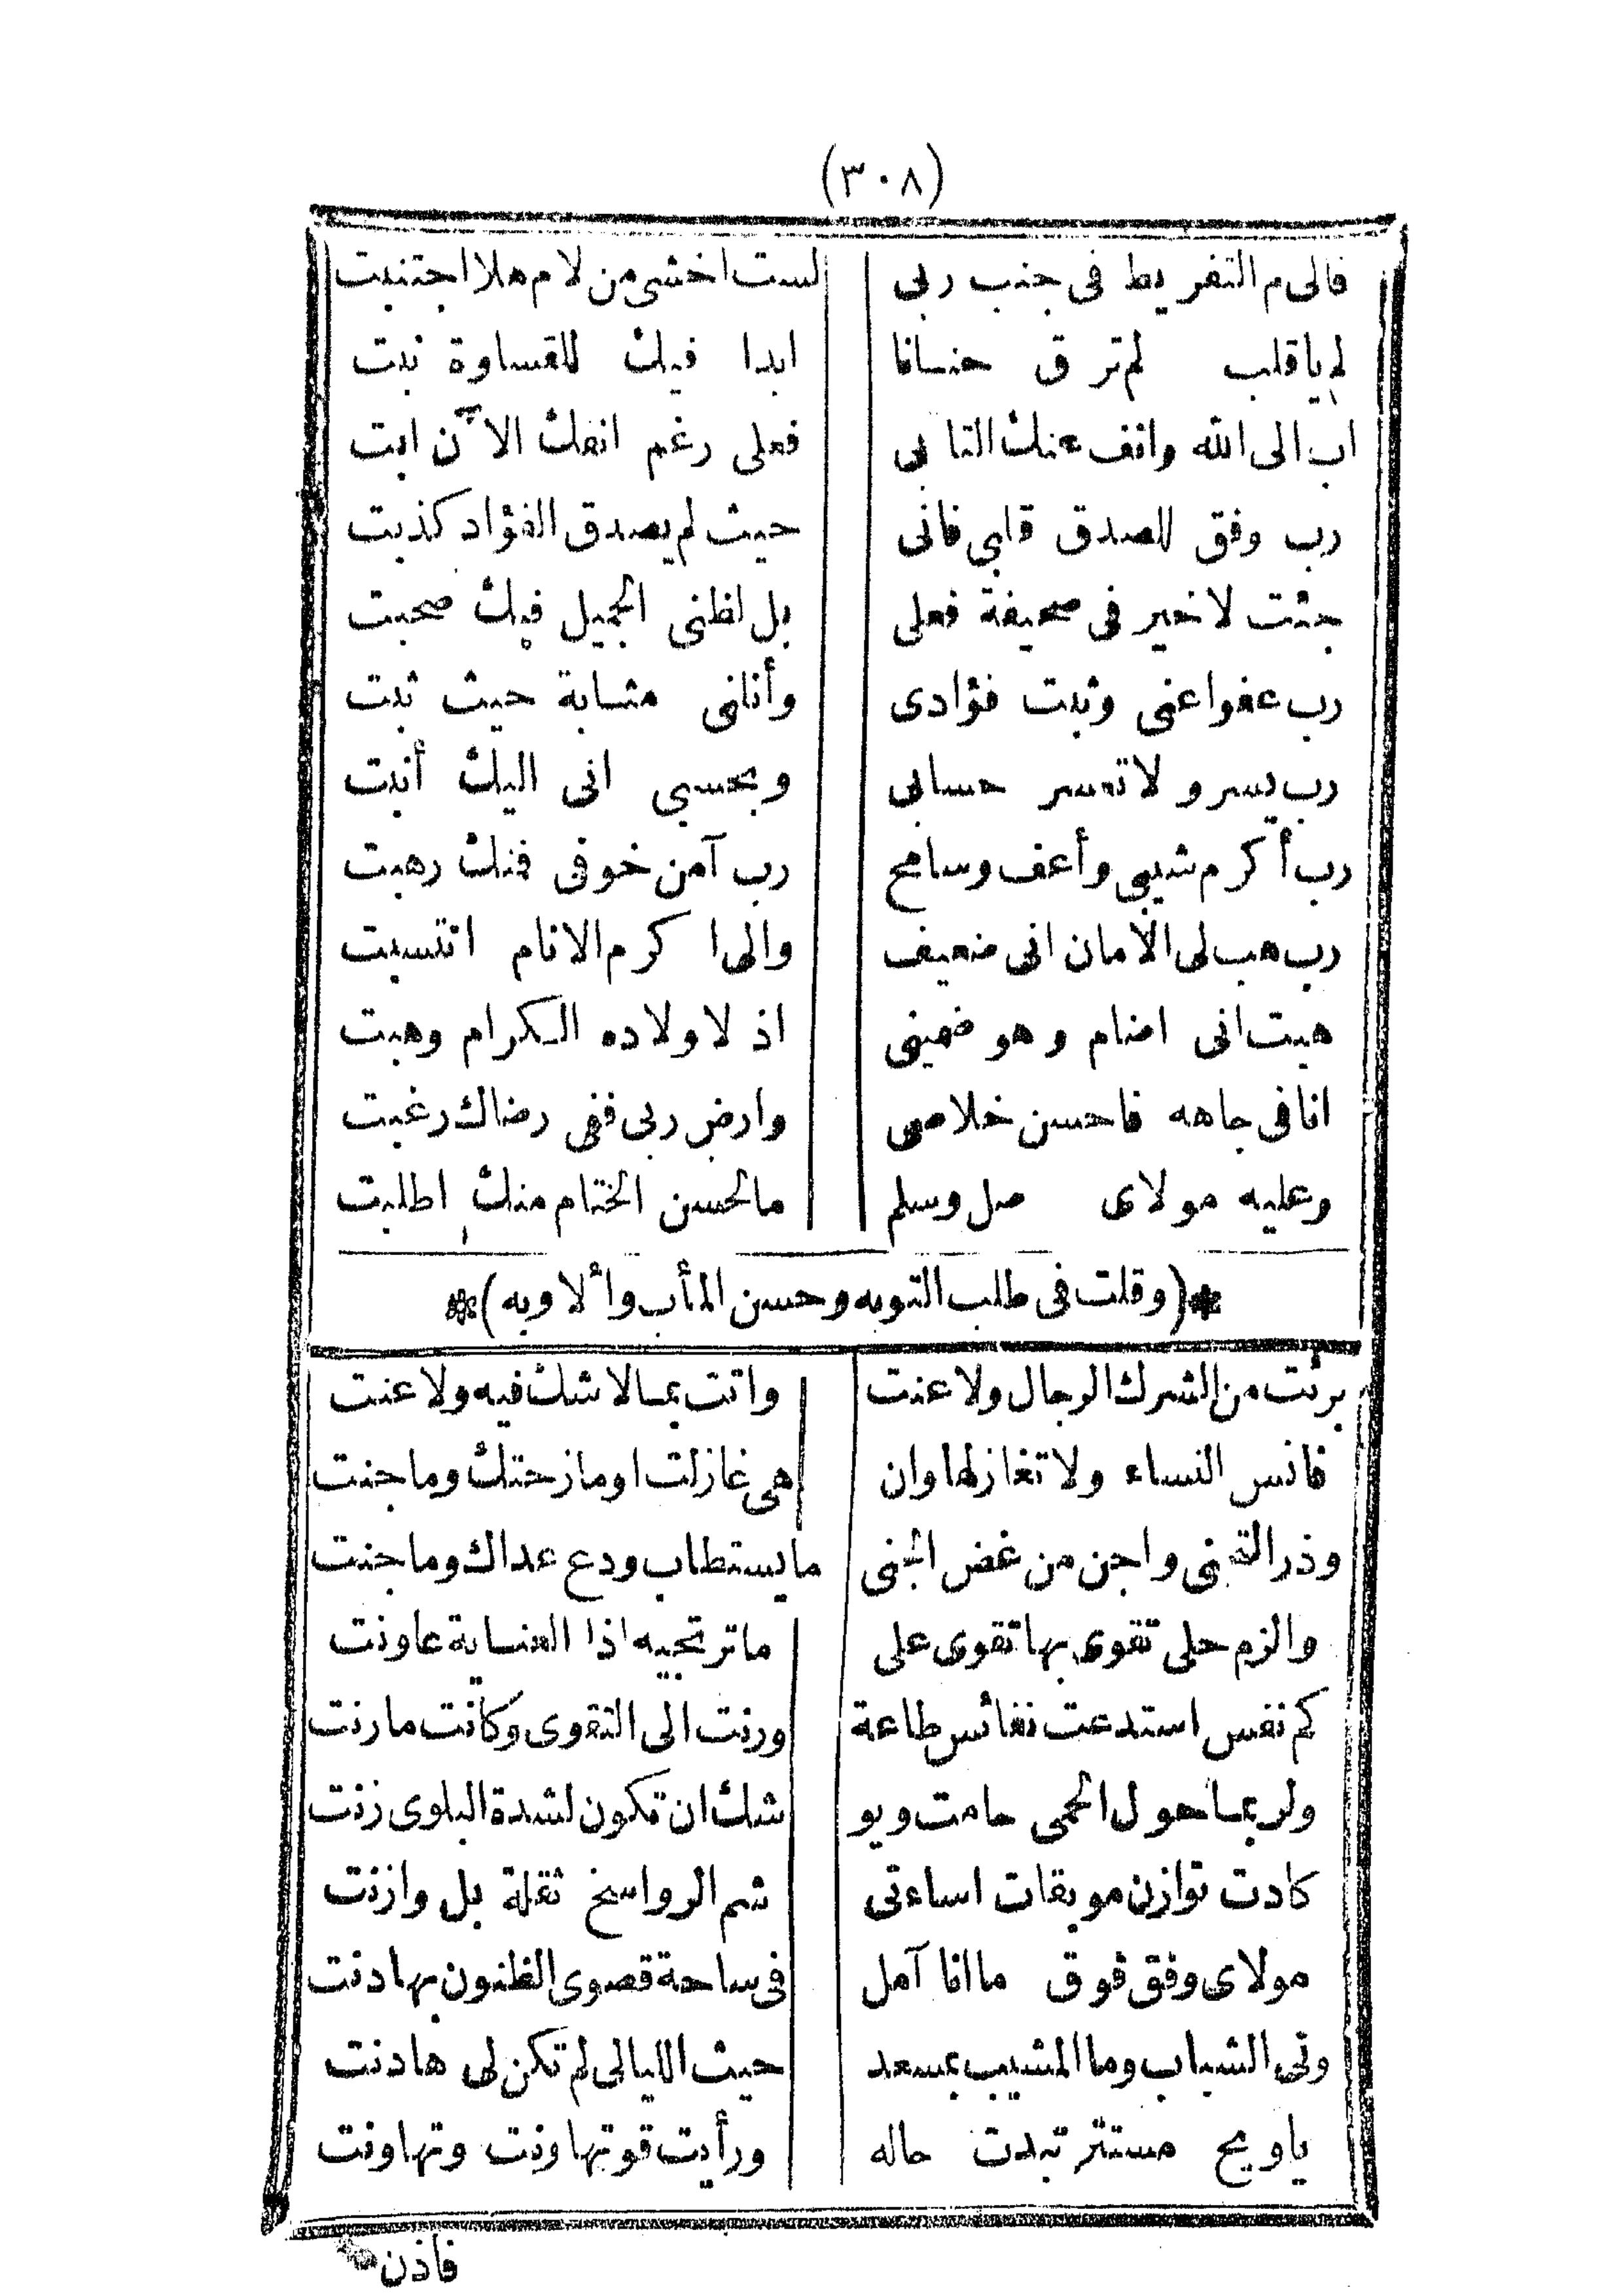 (٣٠٨)
فالى م التفريط فى جنب ربى لست اخشى من لام هلا اجتنبت
لم ياقلب لم ترق حنانا ابدا فيك للقساوة نبت
اب الى الله وانف عنك التابى فعلى رغم انفك الآن ابت
رب وفق للصدق قلبى فانى حيث لم يصدق الفؤاد كذبت
جئت لا خير فى صحيفة فعلى بل لظنى الجميل فيك صحبت
رب عفوا عنى وثبت فؤادى وأنانى مثابة حيث ثبت
رب يسر ولا تعسر حسابى وبحسبى انى اليك أنبت
رب أكرم شيبى وأعف وسامح رب آمن خوفى فمنك رهبت
رب هب لى الأمان انى ضعيف والى اكرم الانام انتسبت
هبت انى اضام وهو ضمينى اذ لاولاده الكرام وهبت
انا فى جاهه فاحسن خلاصى وارض ربى ففى رضاك رغبت
وعليه مولاى صل وسلم مالحسن الختام منك اطلبت
*(وقلت فى طلب التوبه وحسن المأب وألاوبه)*
برئت من الشرك الرجال ولا عنت واتت بمالا شك فيه ولا عنت
فانس النساء ولا تغازلها وان هى غازلت او مازحتك وماجنت
وذر التجنى واجن من غض الجنى مايستطاب ودع عداك وماجنت
والزم حلى تقوى بها تقوى على ماترتجيه اذا العناية عاونت
كم نفس استدعت نفائس طاعة ورنت الى التقوى وكانت مارنت
ولربما حول الحمى حامت ويو شك ان تكون لشدة البلوى زنت
كادت توازن موبقات اساءتى شم الرواسخ ثقلة بل وازنت
مولاى وفق فوق ما انا آمل فى ساحة قصوى الظنون بها دنت
ولى الشباب وما المشيب بمسعد حيث الليالى لم تكن لى هادنت
ياويح مستتر تبدت حاله ورأيت قوتها ونت وتهاونت
فاذن